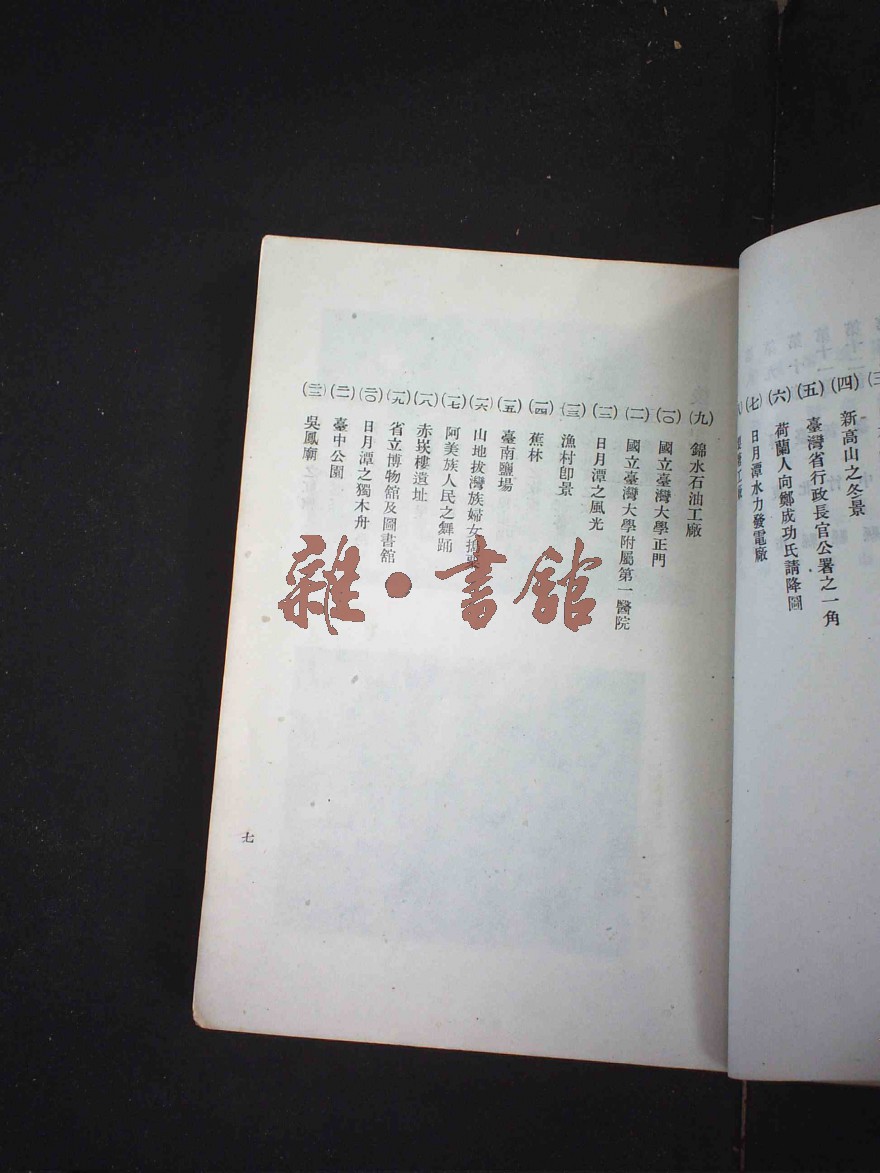 (四) 新高山之冬景
(五) 臺灣省行政長官公署之一角
(六) 荷蘭人向鄭成功氏請降圖
(七) 日月潭水力發電廠
(九) 錦水石油工廠
(一〇) 國立臺灣大學正門
(一一) 國立臺灣大學附屬第一醫院
(一二) 日月潭之風光
(一三) 漁村卽景
(一四) 蕉林
(一五) 臺南鹽場
(一六) 山地拔灣族婦女
(一七) 阿美族人民之舞踊
(一八) 赤崁樓遺址
(一九) 省立博物館及圖書館
(二〇) 日月潭之獨木舟
(二一) 臺中公園
(二二) 吳鳳廟
七
雜·書舘